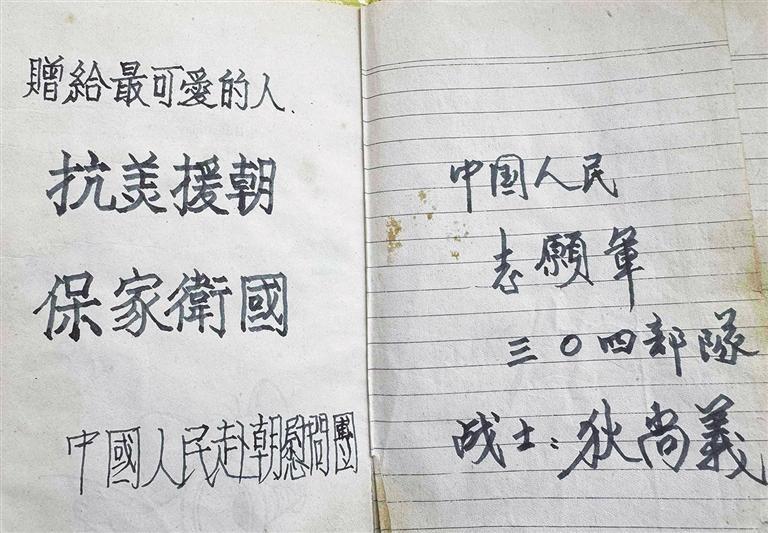 贈給最可愛的人.
抗美援朝
保家衛國
中國人民赴朝慰問團
中国人民
志願軍
三〇四部隊
战士：狄尚義